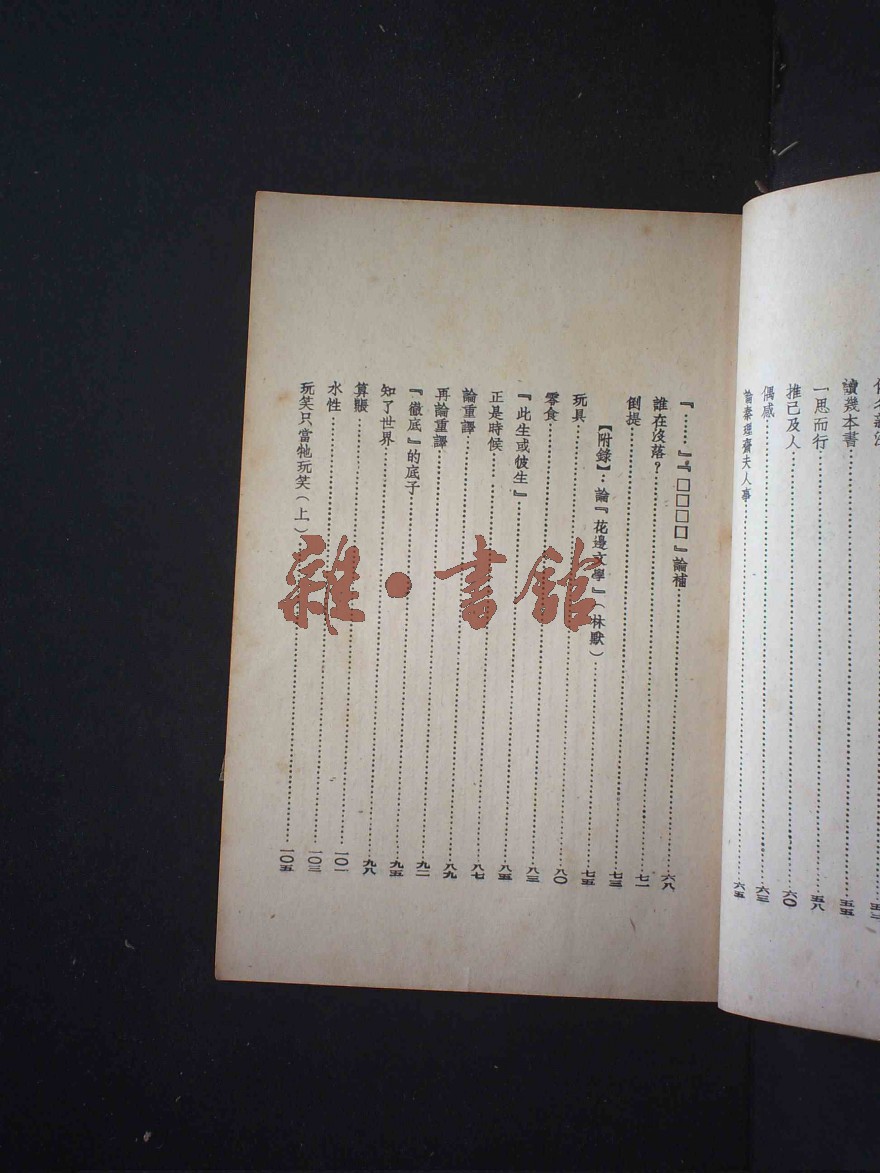 讀幾本書……五五
一思而行……五八
推己及人……六〇
偶感……六三
論秦理齋夫人事……六五
『……』『□□□□』論補……六八
誰在沒落?……七一
倒提……七三
【附錄】:論『花邊文學』(林默)……七五
玩具……八〇
零食……八三
『此生或彼生』……八五
正是時候……八七
論重譯……八九
再論重譯……九二
『徹底』的底子……九五
知了世界……九八
算賬……一〇一
水性……一〇三
玩笑只當牠玩笑(上)……一〇五
雜·書館